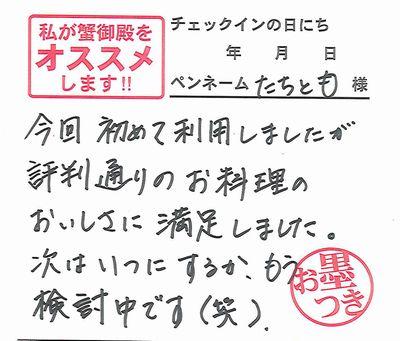 私が蟹御殿を
オススメ
します!!
チェックインの日にち
年 月 日
ペンネーム たちとも 様
今回 初めて利用しましたが
評判通りのお料理の
おいしさに満足しました。
次はいつにするか、もう
検討中です(笑).
お墨
つき